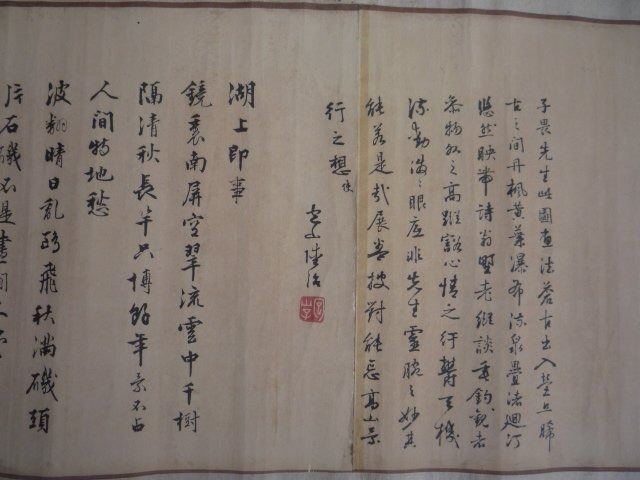 子畏先生此圖畫法蒼古出入營丘晞
古之間丹楓黃葉瀑布流泉疊法迴汀
悠然映帶詩翁野老縱談垂釣觀者
參物外之高蹤豁心情之行鬱天機
流動滿之眼底非先生靈腕之妙其
能若是哉展卷披對能忘高山景
行之想後
陸治
湖上即事
鏡裏南屏空翠流雲中千樹
隔清秋長年只博餘年景不占
人間特地愁
波翻晴日亂鷗飛秋滿磯頭
片石磯不是畫